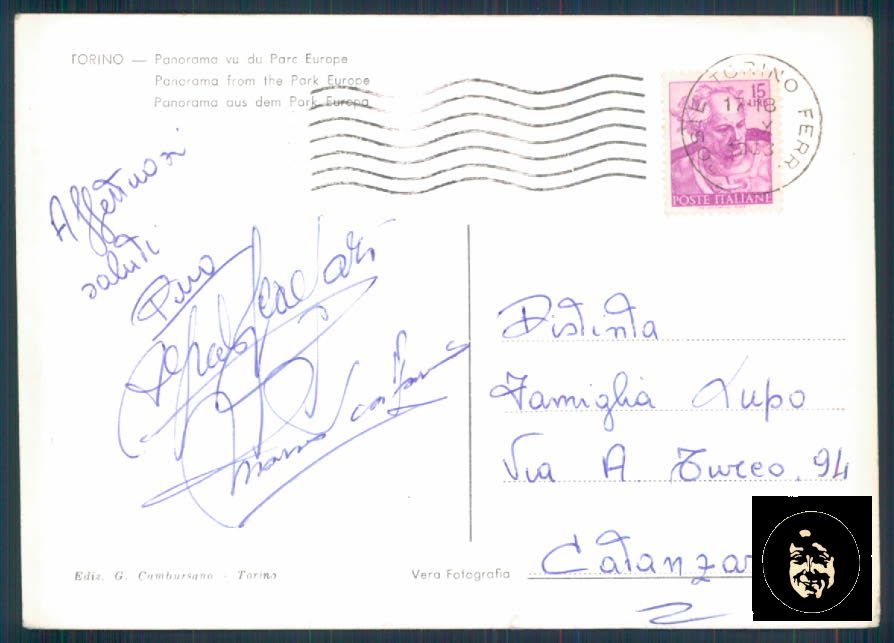 TORINO — Panorama vu du Parc Europe
Panorama from the Park Europe
Panorama aus dem Park Europa
15
LIRE
POSTE ITALIANE
TORINO FERR.
17-18
Affettuosi
saluti
Pino
Distinta
Famiglia Lupo
Via A. Turco. 94
Catanzar
Ediz. G. Cambursano - Torino
Vera Fotografia